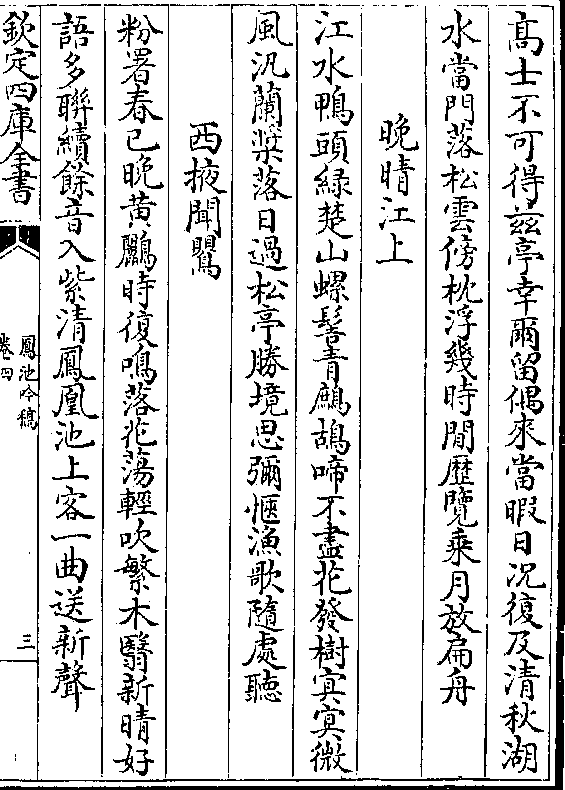 髙士不可得兹亭幸爾留偶來當暇日况復及清秋湖
水當門落松雲傍枕浮幾時閒歴覽乗月放扁舟
晩晴江上
江水鴨頭緑楚山螺髻青鷓鴣啼不盡花發樹寅寅微
風汎蘭槳落日過松亭勝境思彌愜漁歌隨處聽
西掖聞鶯
粉署春已晩黄鸝時復鳴落花蕩輕吹繁木翳新晴好
語多聯續餘音入紫清鳳凰池上客一曲送新聲
欽定四庫全書
鳳池吟稿
卷四
三